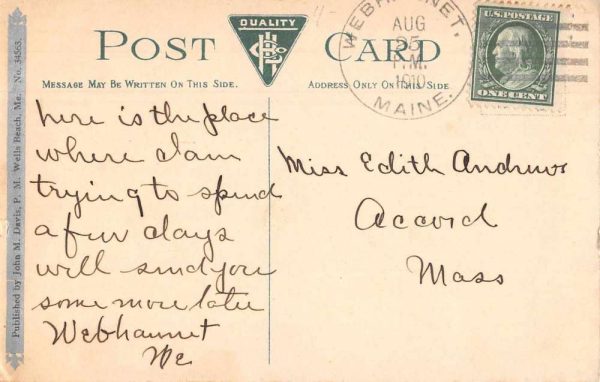 QUALITY
POST CARD
MESSAGE MAY BE WRITTEN ON THIS SIDE.
ADDRESS ONLY ON THIS SIDE
WEBHANNET,
AUG
25
P.M.
1910
MAINE.
U.S. POSTAGE
ONE CENT
Published by John M. Davis, P. M. Wells Beach, Me. No. 34563.
here is the place
where I am
trying to spend
a few days
will send you
some more later
Webhannet
Me
Miss Edith Andrews
Accord
Mass